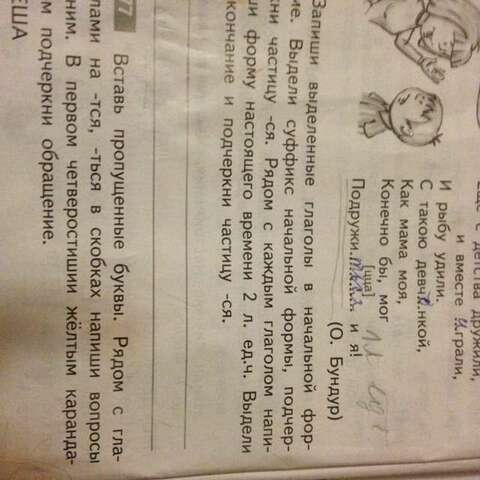 Еще с детства дружили,
и вместе играли,
И рыбу удили.
С такою девчонкой,
Как мама моя,
Конечно бы, мог
[цца]
Подружиться и я!
(О. Бундур)
Запиши выделенные глаголы в начальной фор-
ме. Выдели суффикс начальной формы, подчер-
кни частицу -ся. Рядом с каждым глаголом напи-
ши форму настоящего времени 2 л. ед.ч. Выдели
окончание и подчеркни частицу -ся.
Вставь пропущенные буквы. Рядом с гла-
лами на -тся, -ться в скобках напиши вопросы
ним. В первом четверостишии жёлтым каранда-
м подчеркни обращение.
ЕША